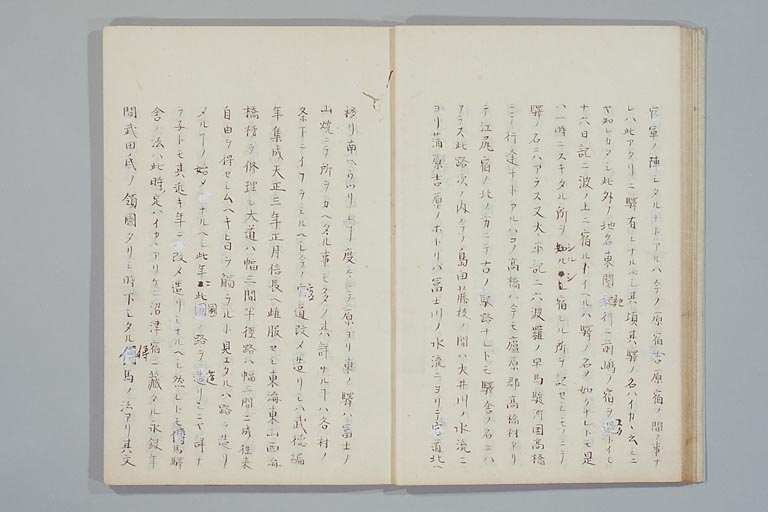 官軍ノ陣シタルナドアルハ今ノ原宿吉原宿ノ間ノ事ナ
レハ此アタリニ驛有シナルヘシ其頃其驛ノ名ハイカヽ云シニ
ヤ知レカタシ此外ノ地名東關紀行ニ前嶋ノ宿ヲ過トイヒ
十六日記ニ波ノ上ニ宿ルトイルハ驛ノ名ノ如クナレトモ是
ハ一時ニスキタル所ヲ知ルシ宿レル所ヲ記セシモノニテ
驛ノ名ニハアラス又太平記ニ六波羅ノ早馬駿河国高橋
ニテ行逢ナトアルハコノ高橋ハ今モ廬原郡高橋村アリ
テ江尻宿ノ北ノカニテ古ノ驛路ナレドモ驛舎ノ名ニハ
アラス此路次ノ内今ノ島田藤枝ノ間ハ大井川ノ水流ニ
ヨリ蒲原吉原ノホトリハ富士川ノ水流ニヨリテ官道北ヘ
移リ南ヘウツリシ丁度々ニテ原ヨリ東ノ驛ハ富士ノ
山焼ニテ所ヲカヘタル事モタメノ其詳サルノハ各村ノ
条下ニイフヲミルヘシ今ノ官道改メ造リシハ武徳編
年集成天正三年正月信長ヘ雌服セシ東海東山西海
橋梢ヲ修理シ大道ハ幅三間半径路ハ幅二間ニ成往来
自由ヲ得セシムヘキヒ日ヲ觸ラルト見ヘタルハ路ヲ造リ
メルノ始メナルヘシ此年ニ此國ノ路ヲ造リシニヤ詳ナ
ラ子トモ其近キ年ニ改メ造リシナルヘシ然レトモ傳馬驛
舎ノ法ハ此時定ハイカヽアリケン沼津宿ニ藏タル永禄年
間武田氏ノ領國タリシ時下シタル傳馬ノ法アリ其文